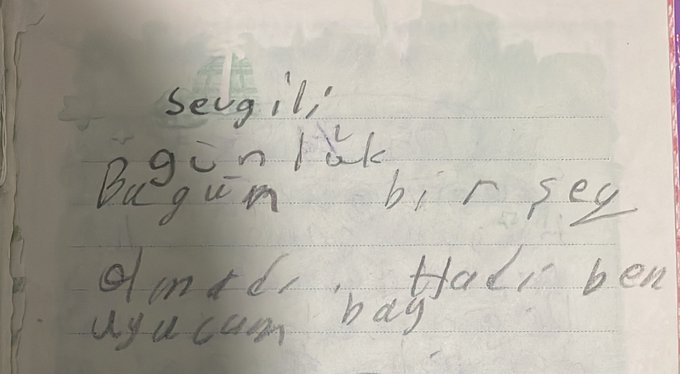 sevgili
günlük
Bugün bir şey
olmadı. Hadi ben
uyucam bay